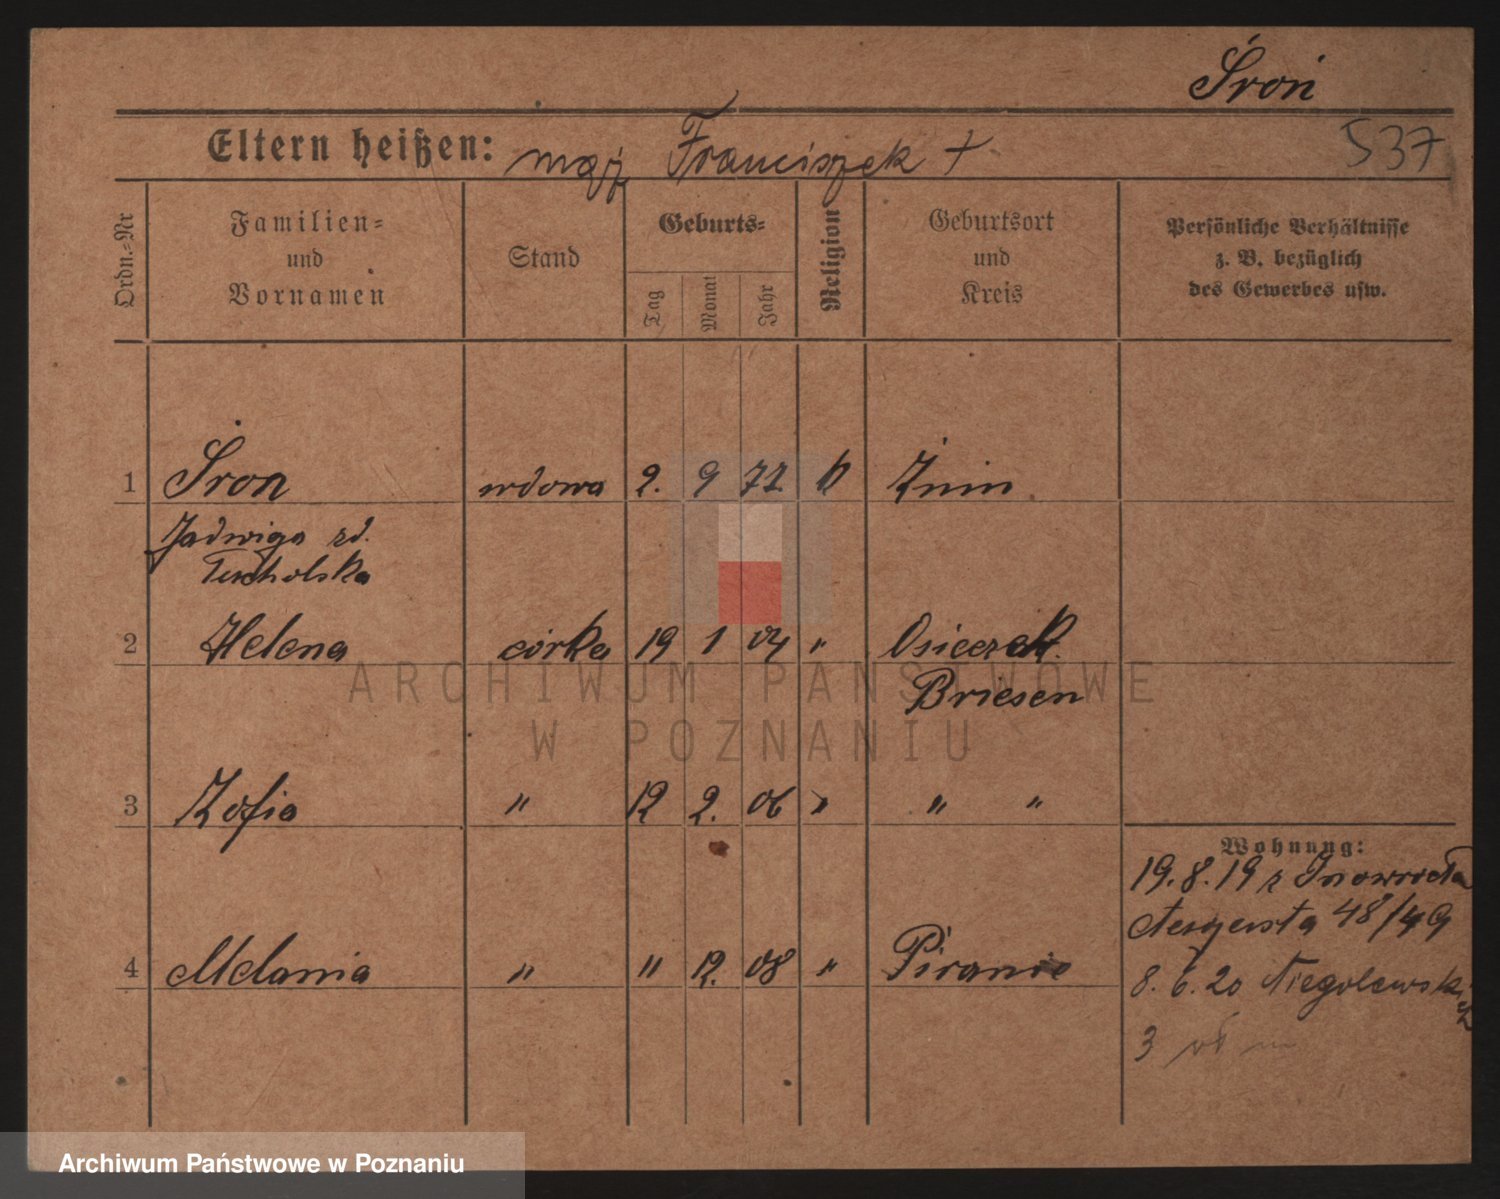 Śroń
Eltern heißen: mąż Franciszek +
537
Ordn.-Nr
Familien-
und
Vornamen
Stand
Geburts-
Tag
Monat
Jahr
Religion
Geburtsort
und
Kreis
Persönliche Verhältnisse
z. B. bezüglich
des Gewerbes usw.
1 Śroń wdowa 2. 9 72 k Żnin
Jadwiga zd.
Tucholska
2 Helena córka 19 1 04 " Osieczek
Briesen
3 Zofia " 12 2. 06 " " "
Wohnung:
19.8.19 z Inowrocła
Augusta 48/49
4 Melania " " 12. 08 " Piranie
8. 6. 20 Niegolewskich
3
ARCHIWUM PAŃSTWOWE
W POZNANIU
Archiwum Państwowe w Poznaniu